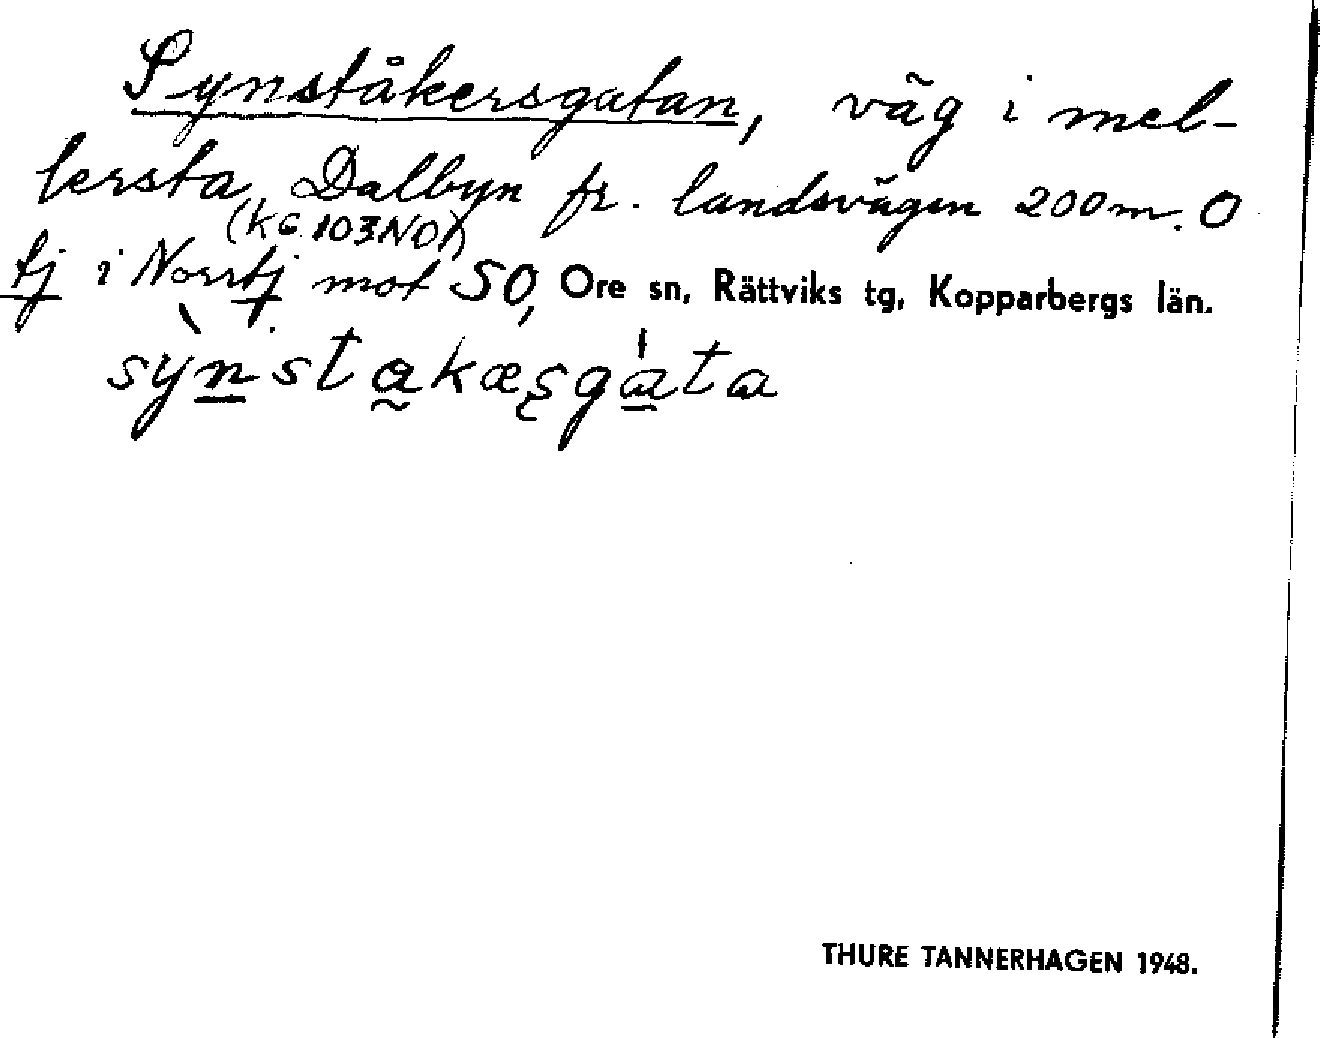 Synståkersgatan, väg i mel-
lersta Dalbyn fr. landsvägen 200 m. O
(K6 103 NO)
tj i Norrtj mot SO, Ore sn, Rättviks tg, Kopparbergs län.
sỳnstakæsgata
THURE TANNERHAGEN 1948.